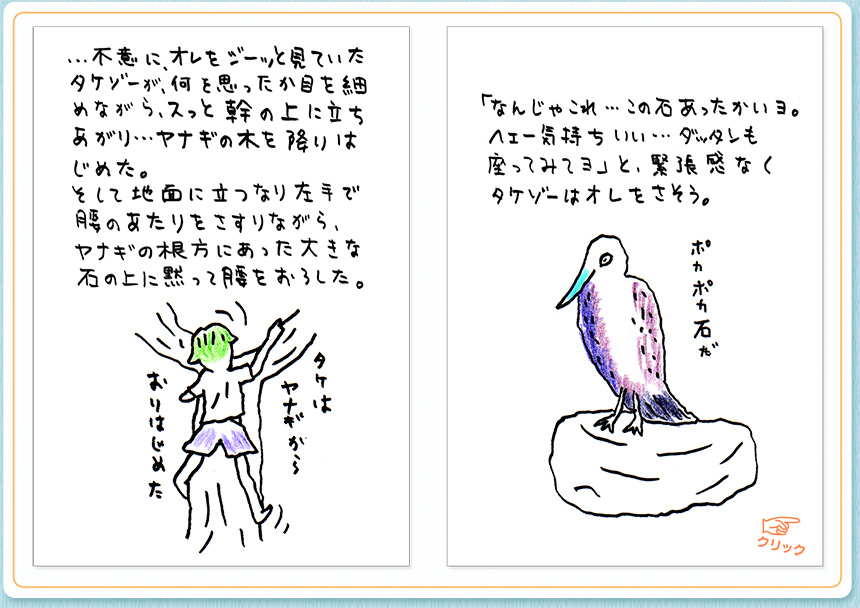 …不意に、オレをジーッと見ていた
タケゾーが、何を思ったか目を細
めながら、スっと幹の上に立ち
あがり…ヤナギの木を降りは
じめた。
そして地面に立つなり左手で
腰のあたりをさすりながら、
ヤナギの根方にあった大きな
石の上に黙って腰をおろした。
タケは
ヤナギから
おりはじめた
「なんじゃこれ…この石あったかいヨ。
ヘェー気持ちいい…ダッタンも
座ってみてヨ」と、緊張感なく
タケゾーはオレをさそう。
ポカポカ石だ
クリック